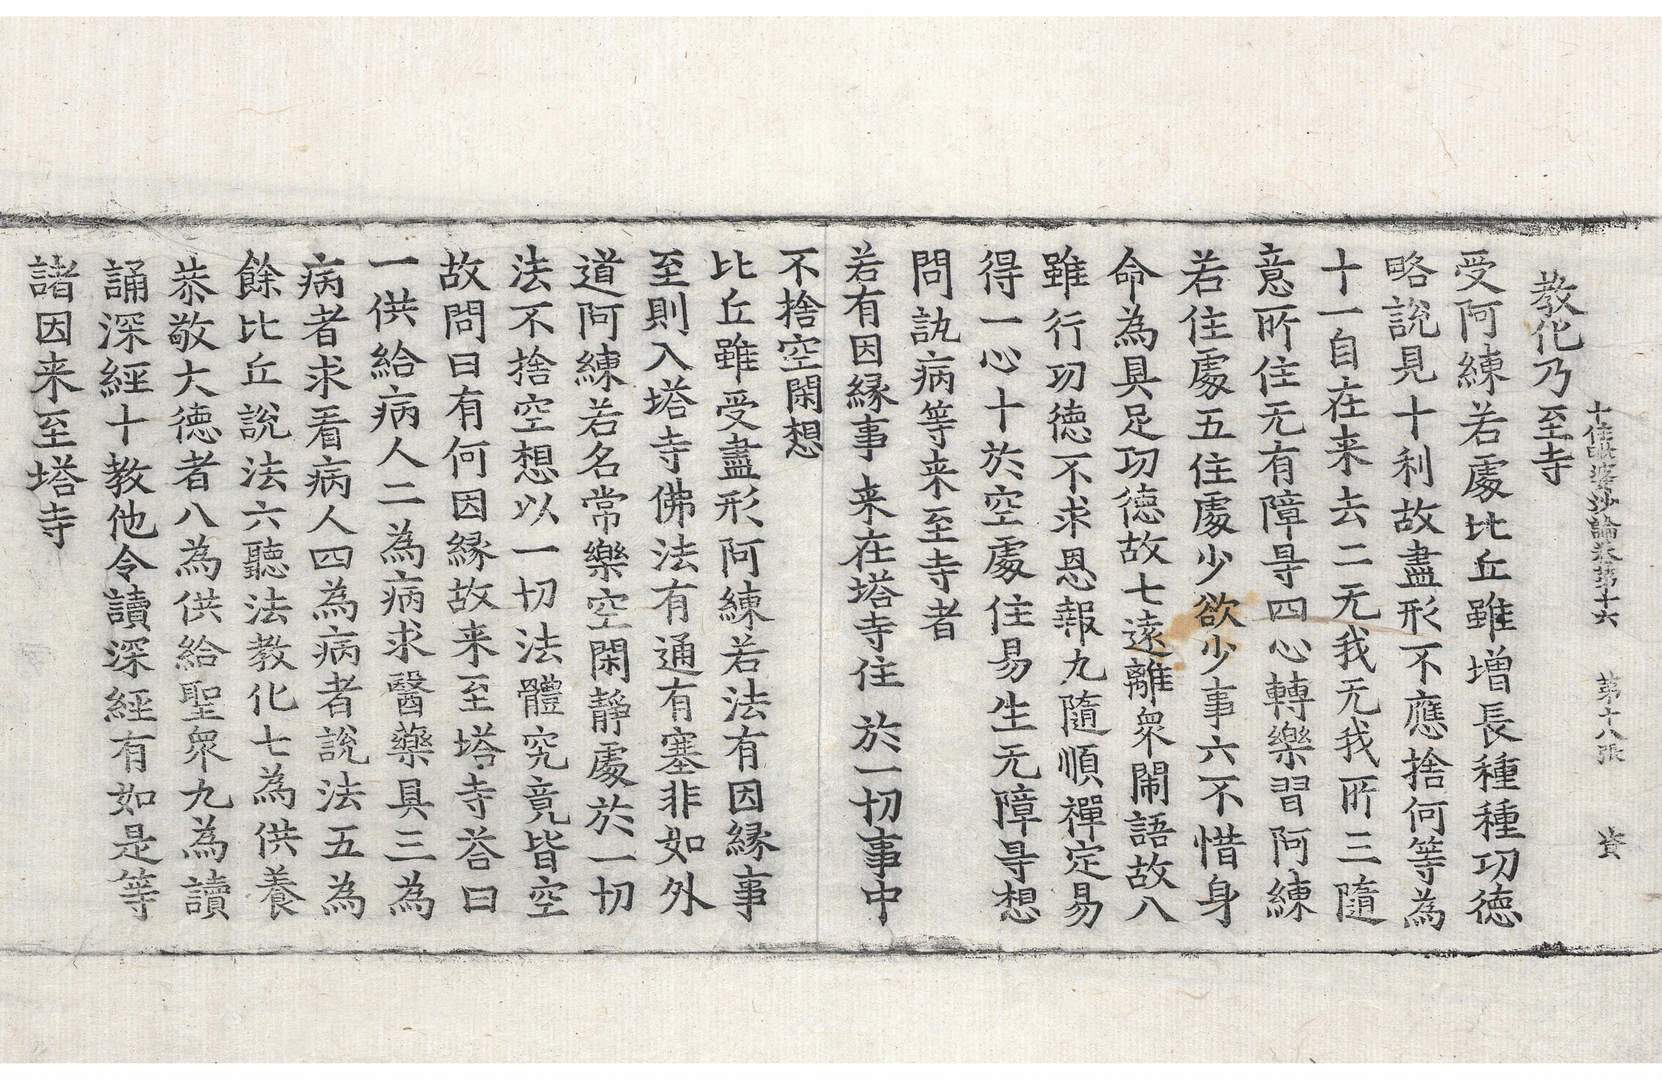 十住毗婆沙論卷第十六　第十八張　資
教化乃至寺
受阿練若處比丘雖增長種種功德
略說見十利故盡形不應捨何等為
十一自在来去二无我无我所三隨
意所住无有障㝵四心轉樂習阿練
若住處五住處少欲少事六不惜身
命為具足功德故七遠離衆鬧語故八
雖行功德不求恩報九隨順禪定易
得一心十於空處住易生无障㝵想
問訙病等来至寺者
若有因縁事来在塔寺住於一切事中
不捨空閑想
比丘雖受盡形阿練若法有因縁事
至則入塔寺佛法有通有塞非如外
道阿練若名常樂空閑靜處於一切
法不捨空想以一切法體究竟皆空
故問曰有何因縁故来至塔寺荅曰
一供給病人二為病求醫藥具三為
病者求看病人四為病者說法五為
餘比丘說法六聽法教化七為供養
恭敬大德者八為供給聖衆九為讀
誦深經十教他令讀深經有如是等
諸因来至塔寺